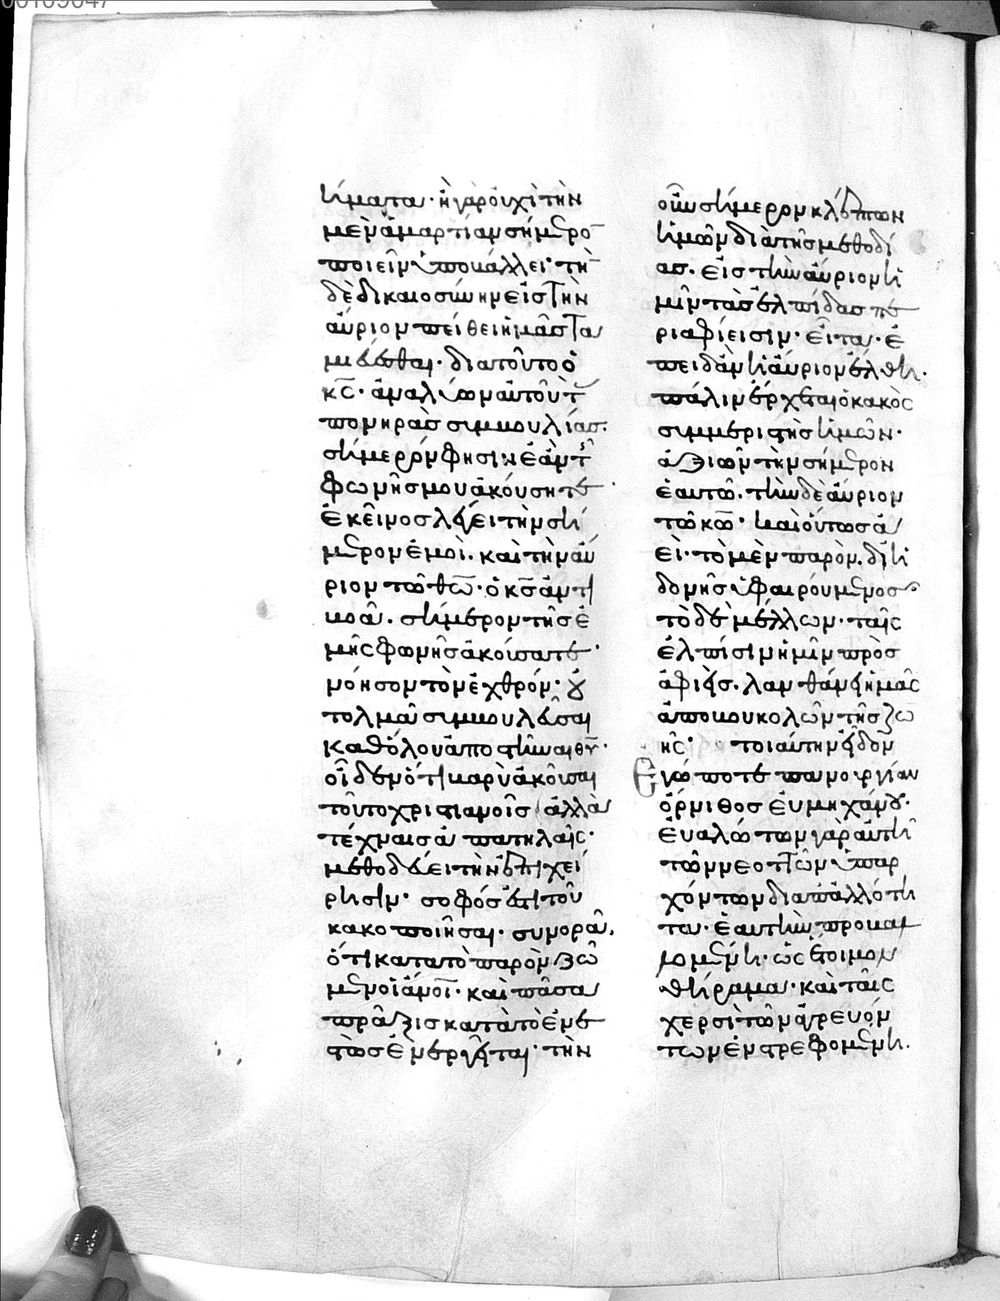 00109047
ήματα· ἢ γὰρ οὐχὶ τὴν
μὲν ἁμαρτίαν σήμερο̄
ποιεῖν ὑποβάλλει· τὴ̄
δὲ δικαιοσύνην εἰς τὴν
αὔριον πείθει ἡμᾶς τα
μιεύεσθαι· διατοῦτο ὁ
κ̅ς̅· ἀναλύων αὐτοῦ τ(ὰς)
πονηρὰς συμβουλίας·
σήμερόν φησιν ἐὰν τῆς
φωνῆς μου ἀκούσητε·
ἐκεῖνος λέγει τὴν σή
μερον ἐμοὶ· καὶ τὴν αὔ
ριον τῶ θ̅ω̅· ὁ κ̅ς̅ ἀντι
βοᾶ· σήμερον τῆς ἐ
μῆς φωνῆς ἀκούσατε·
νόησον τὸν ἐχθρόν· οὐ
τολμᾶ συμβουλεῦσαι
καθόλου ἀποστῆναι θ̅υ̅·
οἶδεν ὅτι βαρὺ ἀκοῦσαι
τοῦτο χριστιανοῖς ἀλλὰ
τέχναις ἀπατηλαῖς·
μεθοδεύει τὴν ἐπιχεί
ρησιν· σοφός ἐστι τοῦ
κακοποιῆσαι· συνορᾶ,
ὅτι κατὰ τὸ παρὸν ζῶ
μεν οἱ ἄνο̅ι̅· καὶ πᾶσα
πρᾶξις κατὰ τὸ ἐνε
στὼς ἐνεργεῖται· τὴν
οὖν σήμερον κλέπτων
ἡμῶν διὰ τῆς μεθοδεί
ας· εἰς τὴν αὔριον ἡ
μῖν τὰς ἐλπίδας πε
ριαφίεισιν· εἶτα· ἐ
πειδὰν ἡ αὔριον ἔλθη·
πάλιν ἔρχεται ὁ κακὸς
συμμεριστὴς ἡμῶν·
ἀξιῶν τὴν σήμερον
ἑαυτῶ· τὴν δὲ αὔριον
τῶ κ̅ω̅· καὶ οὕτως ἀ
εὶ· τὸ μὲν παρὸν· δι ἡ
δονῆς ὑφαιρούμενος·
τὸ δὲ μέλλων· ταῖς
ἐλπίσιν ἡμῖν πρὸς
ἀφιεὶς· λανθάνει ἡμᾶς
ἀποβουκολῶν τῆς ζω
ῆς· τοιαύτην εἶδον
ἐγώ ποτε πανουργίαν
ὄρνιθος εὐμηχάνου·
εὐαλώτων γὰρ αὐτῆ
τῶν νεοττῶν ὑπαρ
χόντων διὰ ἁπαλότη
τα· ἑαυτὴν προβαλ
λομένη· ὡς ἕτοιμον
θήραμα· καὶ ταῖς
χερσὶ τῶν ἀγρευόν
των ἐνστρεφομένη·